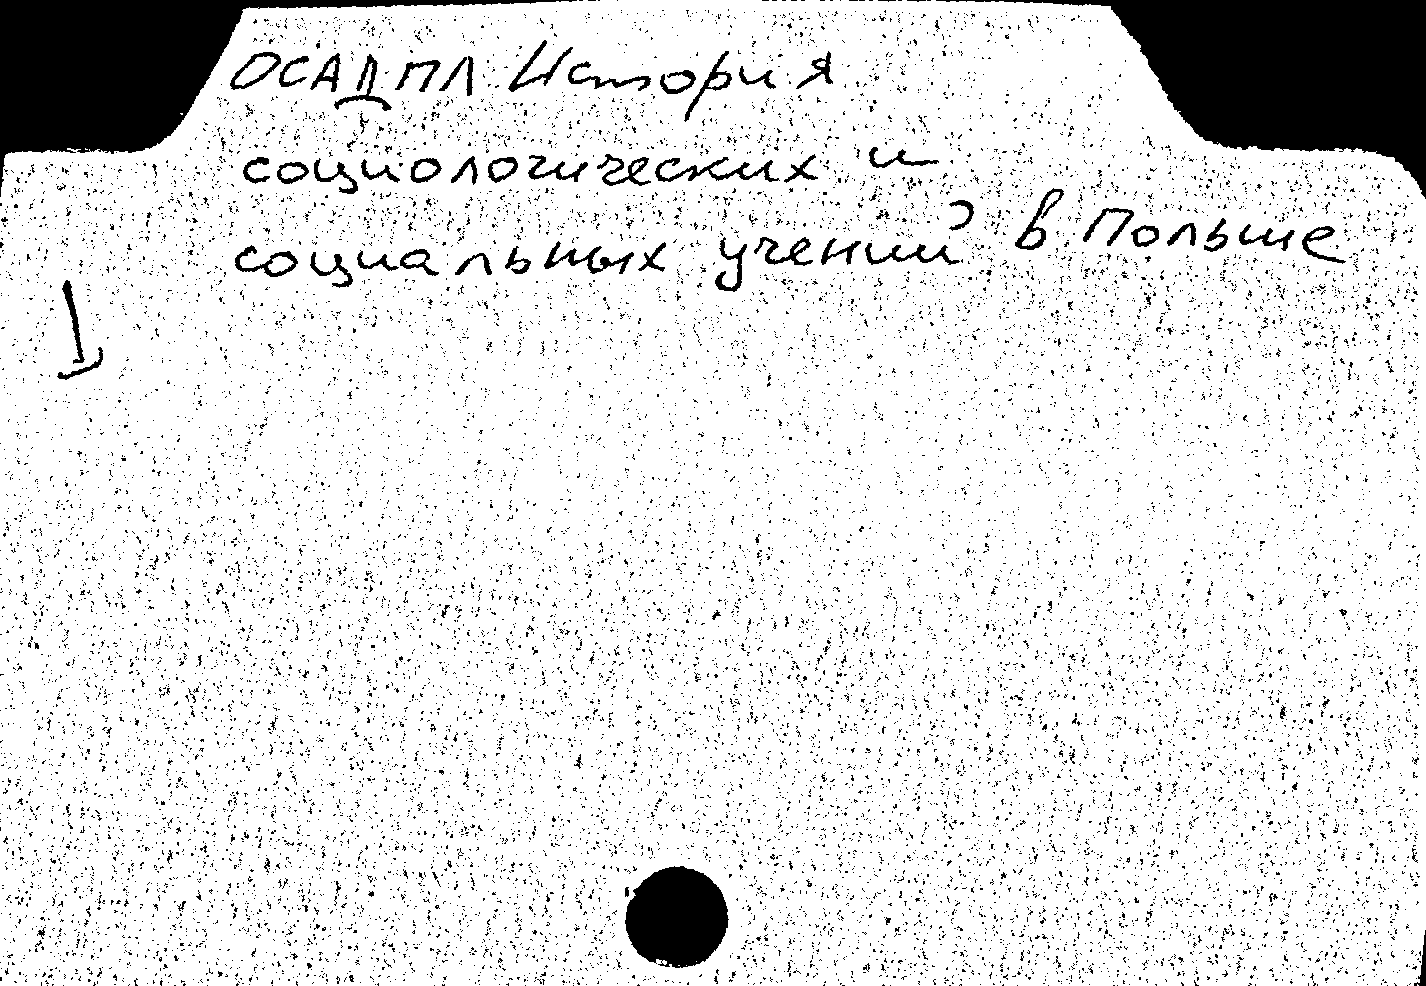 ОСАДПЛ История
социологических и
социальных учений в Польше